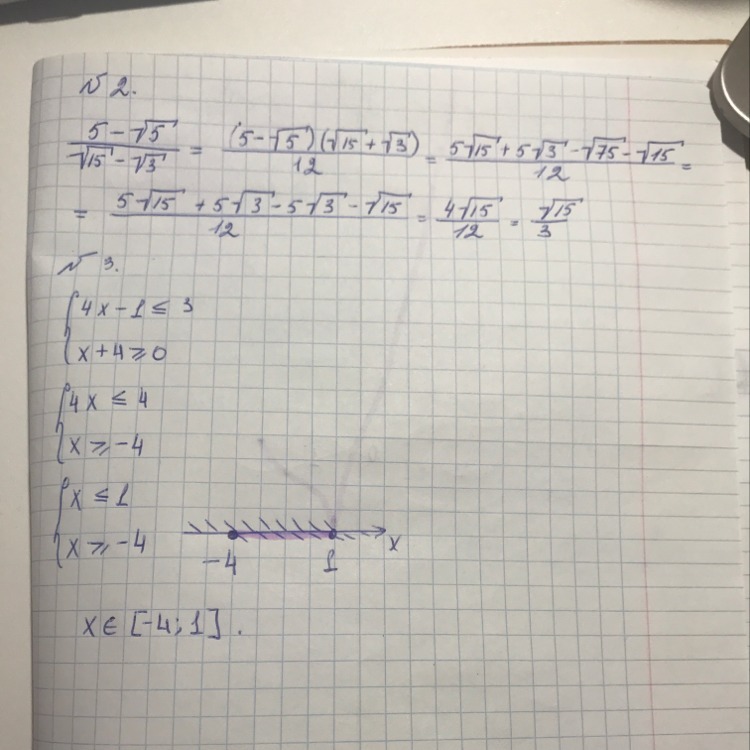 № 2.
(5 − √5)/(√15 − √3) = ((5 − √5)(√15 + √3))/12 = (5√15 + 5√3 − √75 − √15)/12 =
= (5√15 + 5√3 − 5√3 − √15)/12 = 4√15/12 = √15/3
№ 3.
{ 4x − 1 ≤ 3
x + 4 ⩾ 0
{ 4x ≤ 4
x ⩾ −4
{ x ≤ 1
x ⩾ −4
−4 1 x
x ∈ [−4; 1].